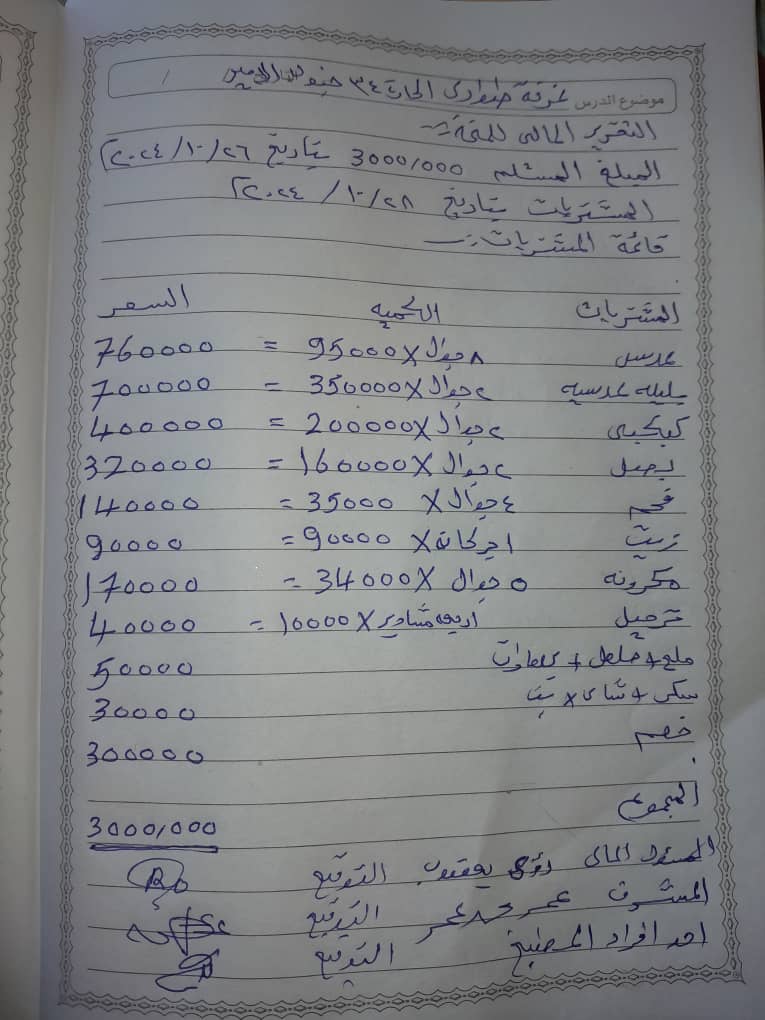 موضوع الدرس غرفة طوارئ الحارة ٣٤ جنوب الامير
التقرير المالى للمنحة :-
المبلغ المستلم 3000,000 بتاريخ ٢٦/١٠/٢٠٢٤م
المشتريات بتاريخ ٢٨/١٠/٢٠٢٤م
قائمة المشتريات :-
المشتريات الكميه السعر
عدس ٨ جوال X 95000 = 760000
بليله عدسيه ٢ جوال X 350000 = 700000
كبكبى ٢ جوال X 200000 = 400000
بصل ٢ جوال X 160000 = 320000
فحم ٤ جوال X 35000 = 140000
زيت ١ جركانة X 90000 = 90000
مكرونه ٥ جوال X 34000 = 170000
ترحيل اربعه مشاوير X 10000 = 40000
ملح + فلفل + بهارات 50000
سكر + شاى x بن 30000
خصم 300000
المجموع 3000,000
المسئول المالى يعقوب التوقيع
المشرف عمر محمد عمر التوقيع
احد افراد المطبخ التوقيع